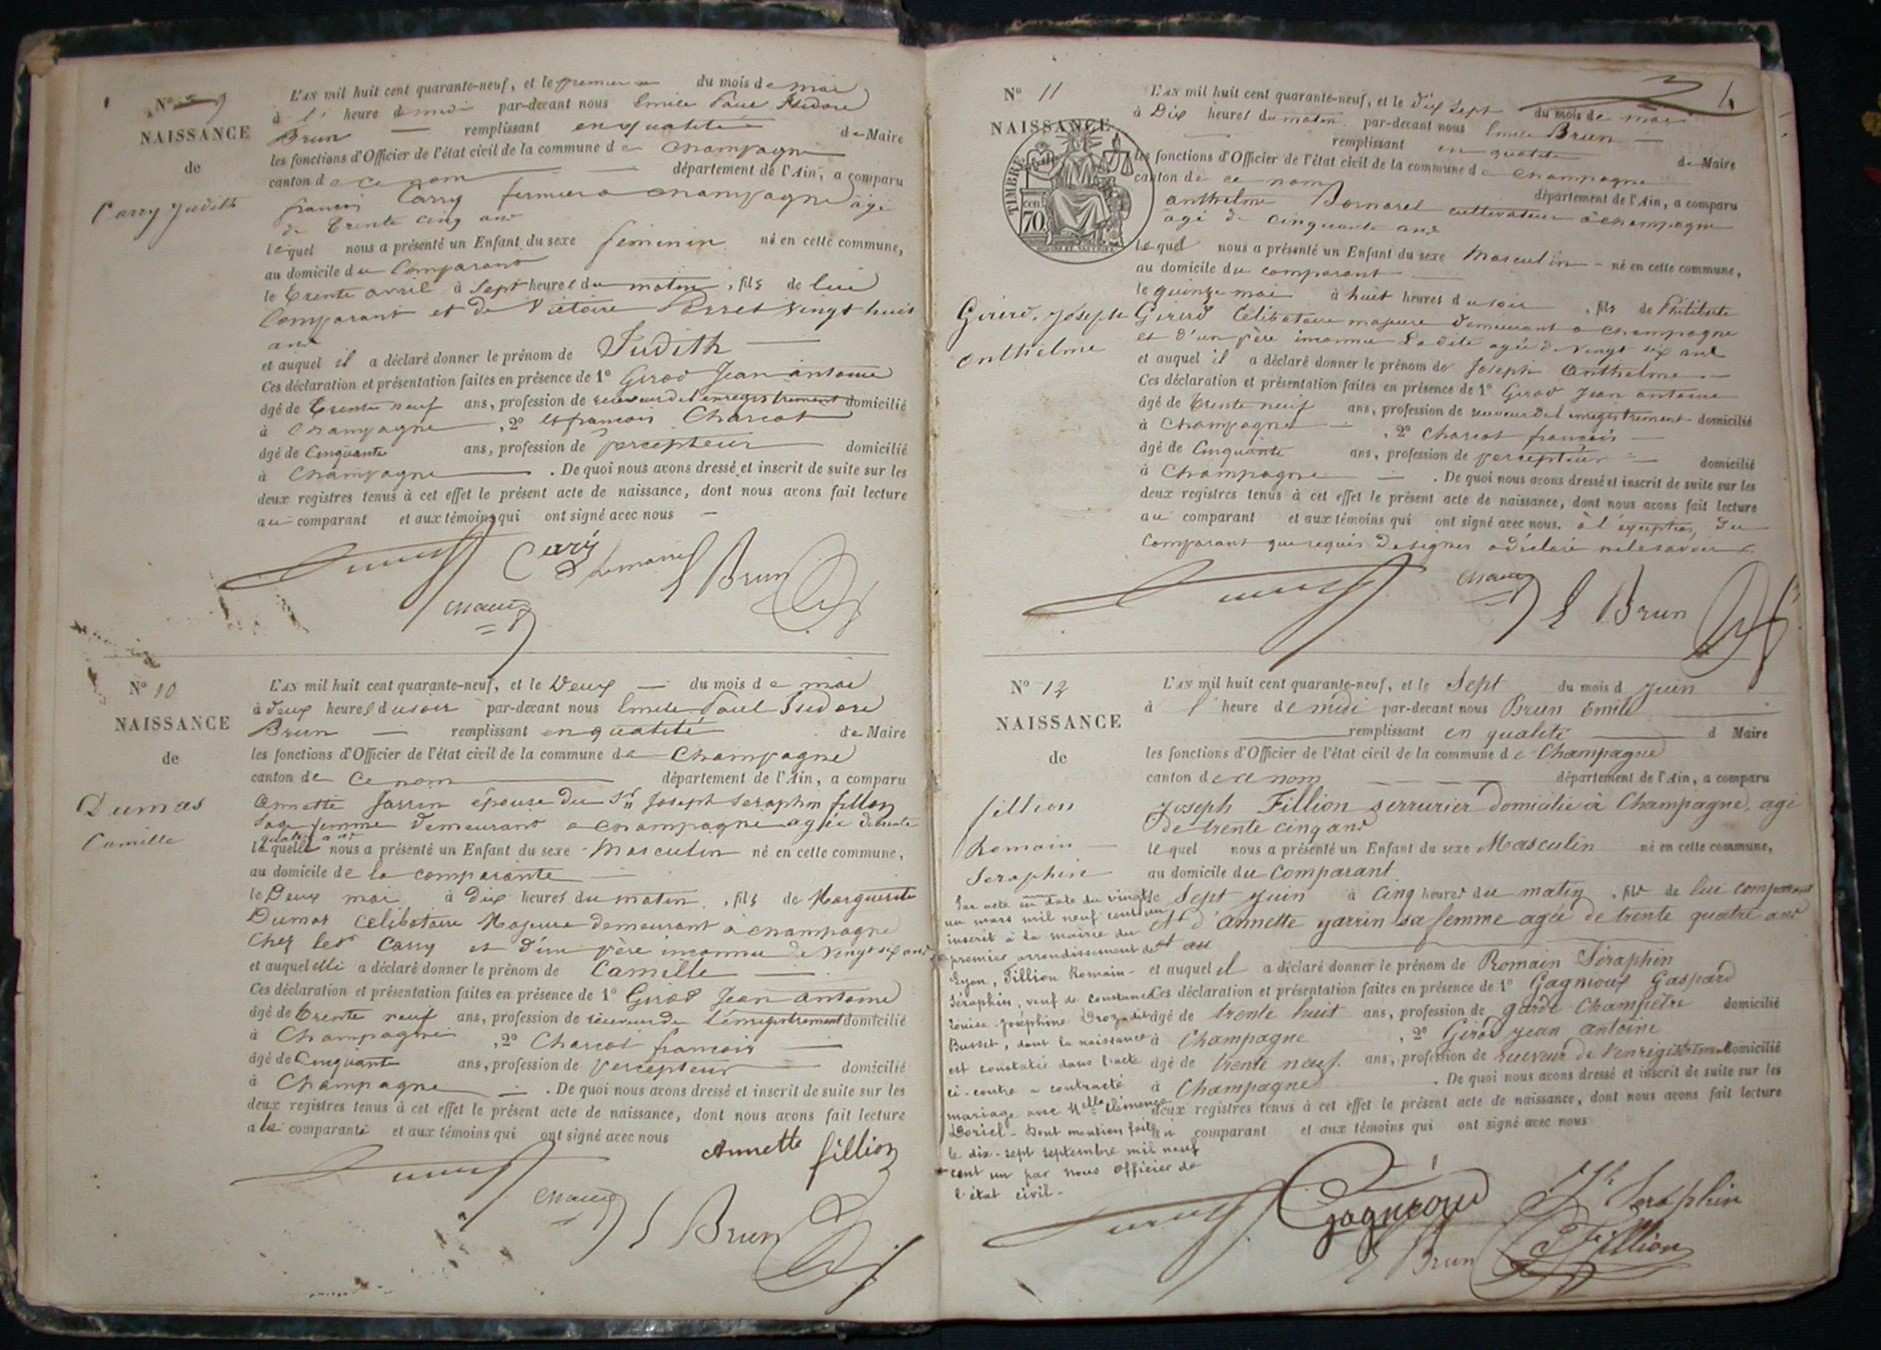 N° 9
NAISSANCE
de
Carry Judith
L'AN mil huit cent quarante-neuf, et le premier du mois de mai
à 1 heure de midi par-devant nous Emile Paul Isidore
Brun remplissant en qualité de Maire
les fonctions d'Officier de l'état civil de la commune de Champagne
canton de ce nom département de l'Ain, a comparu
françois Carry fermier a champagne agé
de trente cinq ans
lequel nous a présenté un Enfant du sexe feminin né en cette commune,
au domicile du Comparant
le trente avril à sept heures du matin, fils de lui
Comparant et de Victoire Perret vingt huit
ans
et auquel il a déclaré donner le prénom de Judith
Ces déclaration et présentation faites en présence de 1° Girod Jean antoine
âgé de trente neuf ans, profession de receveur de l'enregistrement domicilié
à champagne, 2° et francois Charcot
âgé de Cinquante ans, profession de percepteur domicilié
à Champagne. De quoi nous avons dressé et inscrit de suite sur les
deux registres tenus à cet effet le présent acte de naissance, dont nous avons fait lecture
au comparant et aux témoins qui ont signé avec nous
E Brun
N° 10
NAISSANCE
de
Dumas
Camille
L'AN mil huit cent quarante-neuf, et le Deux du mois de mai
à deux heures du soir par-devant nous Emile Paul Isidore
Brun remplissant en qualité de Maire
les fonctions d'Officier de l'état civil de la commune de Champagne
canton de Ce nom département de l'Ain, a comparu
Annette Jarrin épouse du Sr Joseph Seraphin fillion
Sage femme demeurant a champagne agée de trente
quatre ans
laquelle nous a présenté un Enfant du sexe Masculin né en cette commune,
au domicile de la comparante
le Deux mai à dix heures du matin, fils de Marguerite
Dumas Celibataire Majeure demeurant à champagne
Chez le Sr Carry et d'un père inconnu de vingt six ans
et auquel elle a déclaré donner le prénom de Camille
Ces déclaration et présentation faites en présence de 1° Girod Jean antoine
âgé de trente neuf ans, profession de receveur de l'enregistrement domicilié
à Champagne, 2° Charcot francois
âgé de Cinquante ans, profession de percepteur domicilié
à Champagne. De quoi nous avons dressé et inscrit de suite sur les
deux registres tenus à cet effet le présent acte de naissance, dont nous avons fait lecture
a la comparante et aux témoins qui ont signé avec nous
Annette fillion
E Brun
4
N° 11
NAISSANCE
TIMBRE
70
Girerd, Joseph
anthelme
L'AN mil huit cent quarante-neuf, et le dix sept du mois de mai
à Dix heures du matin par-devant nous Emile Brun
remplissant en qualité de Maire
les fonctions d'Officier de l'état civil de la commune de champagne
canton de ce nom département de l'Ain, a comparu
anthelme Bornarel cultivateur à champagne
agé de cinquante ans
lequel nous a présenté un Enfant du sexe Masculin né en cette commune,
au domicile du comparant
le quinze mai à huit heures du soir, fils de Philiberte
Girerd Celibataire majeure demeurant a champagne
et d'un père inconnu Ladite agée de vingt six ans
et auquel il a déclaré donner le prénom de Joseph Anthelme
Ces déclaration et présentation faites en présence de 1° Girod Jean antoine
âgé de trente neuf ans, profession de receveur de l'enregistrement domicilié
à Champagne, 2° Charcot françois
âgé de Cinquante ans, profession de percepteur domicilié
à Champagne. De quoi nous avons dressé et inscrit de suite sur les
deux registres tenus à cet effet le présent acte de naissance, dont nous avons fait lecture
au comparant et aux témoins qui ont signé avec nous. à l'exception, du
Comparant que requis de signer a déclaré ne le savoir
E Brun
N° 12
NAISSANCE
de
fillion
Romain
Seraphin
Par acte en date du vingt
un mars mil neuf cent un
inscrit à la mairie du
premier arrondissement de
Lyon, Fillion Romain-
Séraphin, veuf de Constance
Louise-Joséphine Droz dit
Busset, dont la naissance
est constatée dans l'acte
ci-contre a contracté
mariage avec Melle Clémence
Doriel. Dont mention faite
le dix-sept septembre mil neuf
cent un par nous officier de
l'état civil.
L'AN mil huit cent quarante-neuf, et le Sept du mois d Juin
à 1 heure de midi par-devant nous Brun Emile
remplissant en qualité d Maire
les fonctions d'Officier de l'état civil de la commune de Champagne
canton de ce nom département de l'Ain, a comparu
Joseph Fillion serrurier domicilié à Champagne, agé
de trente cinq ans
lequel nous a présenté un Enfant du sexe Masculin né en cette commune,
au domicile du Comparant
le Sept Juin à Cinq heures du matin, fils de lui comparant
et d'Annette yarrin sa femme agée de trente quatre ans
et auquel il a déclaré donner le prénom de Romain Séraphin
Ces déclaration et présentation faites en présence de 1° Gagnioux Gaspard
âgé de trente huit ans, profession de garde Champêtre domicilié
à Champagne, 2° Girod yean antoine
âgé de trente neuf ans, profession de receveur de l'enrigistrement domicilié
à Champagne. De quoi nous avons dressé et inscrit de suite sur les
deux registres tenus à cet effet le présent acte de naissance, dont nous avons fait lecture
au comparant et aux témoins qui ont signé avec nous
Gagnioux
Seraphin
fillion
E Brun